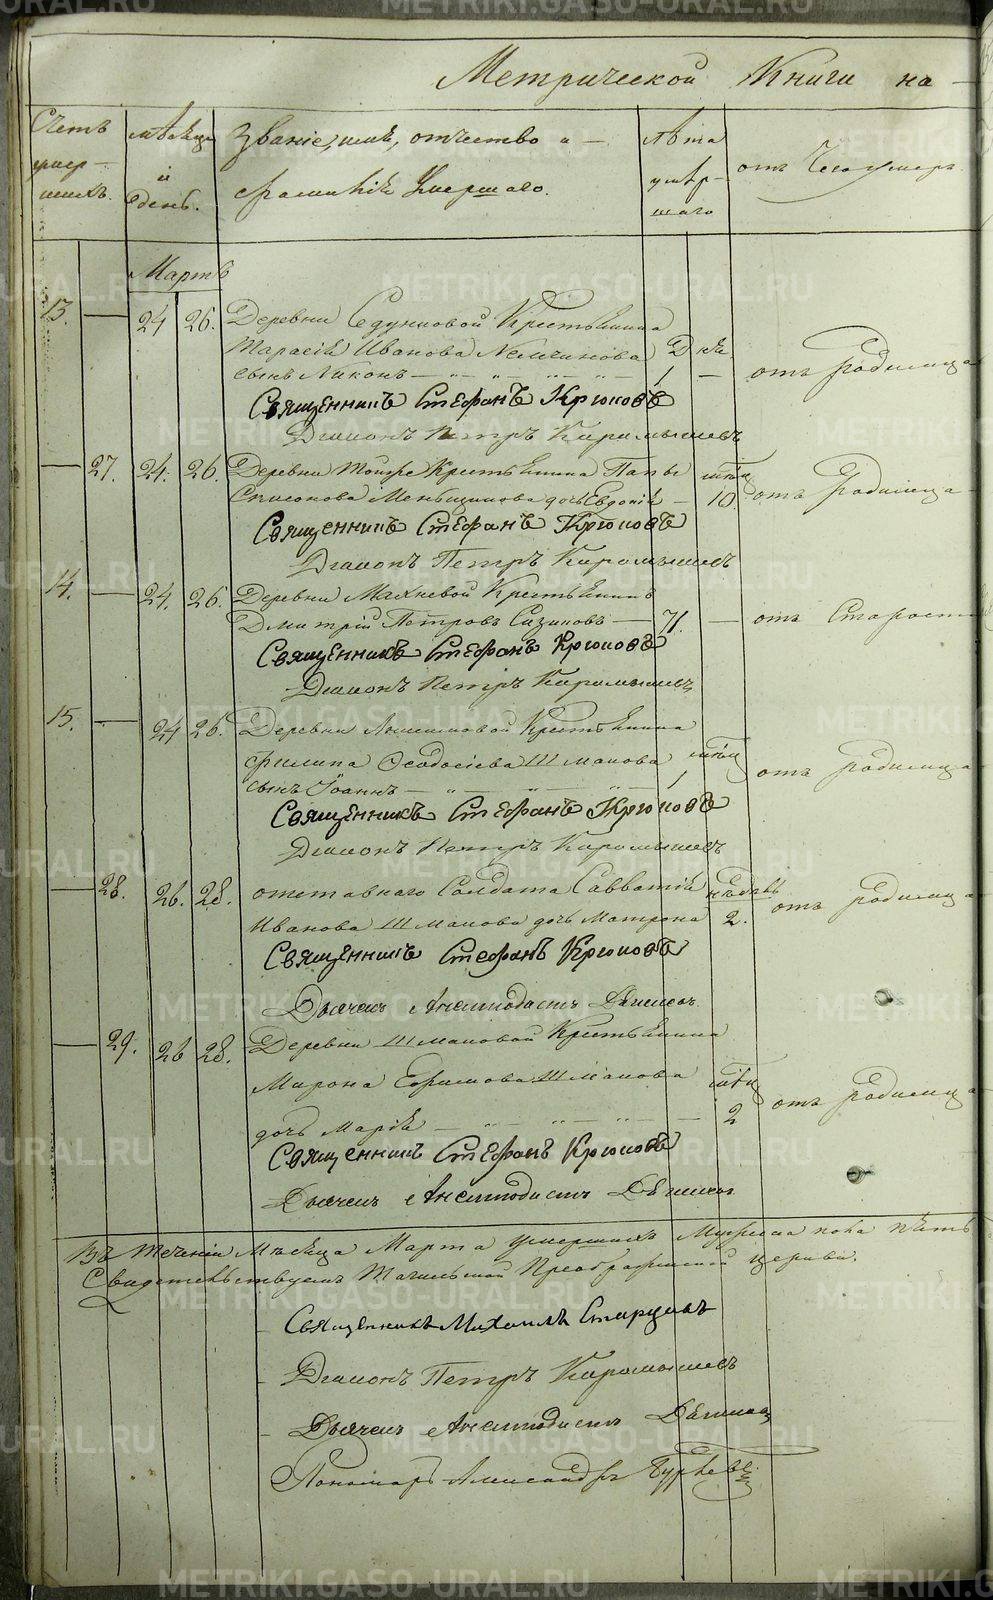 Метрической Книги на
Счетъ умер-шихъ.
мѣсяцъ и день.
Званіе, имя, отчество и фамилія Умершаго.
Лѣта умер-шаго
отъ Чего умеръ.
Мартъ
13. — 24 26. Деревни Седунковой Крестьянина
Тарасія Иванова Немчинова Дни
сынъ Никонъ 1 — отъ родимца
Священникъ Стефанъ Крюковъ
Діаконъ Петръ Карамышевъ
— 27. 24. 26. Деревни Тойже Крестьянина Папы мѣсяц
Спиридонова Меньщикова дочь Евдокія — 10. отъ родимца
Священникъ Стефанъ Крюковъ
Діаконъ Петръ Карамышевъ
14. — 24. 26. Деревни Махневой Крестьянинъ
Дмитрій Петровъ Сизиковъ — 71. — отъ Старост
Священникъ Стефанъ Крюковъ
Діаконъ Петръ Карамышевъ
15. — 24 26. Деревни Крестьянина
Филипа Ѳеодосіева Шмакова мѣсяц
сынъ Іоаннъ 1 отъ родимца
Священникъ Стефанъ Крюковъ
Діаконъ Петръ Карамышевъ
— 28. 26. 28. отставнаго Солдата Савватія недѣль
Иванова Шмакова дочь Матрона 2. отъ родимца
Священникъ Стефанъ Крюковъ
Дьячекъ Анемподистъ
— 29. 26 28. Деревни Шмаковой Крестьянина
Мирона Ефимова Шмакова мѣсяц
дочь Марія — 2 отъ родимца
Священникъ Стефанъ Крюковъ
Дьячекъ Анемподистъ
Въ теченіи Мѣсяца Марта умершихъ Мужеска пола пять
Свидетельствуемъ Преображенской церкви.
Священникъ Михаилъ Старцевъ
Діаконъ Петръ Карамышевъ
Дьячекъ Анемподистъ
Пономарь Александръ
METRIKI.GASO-URAL.RU